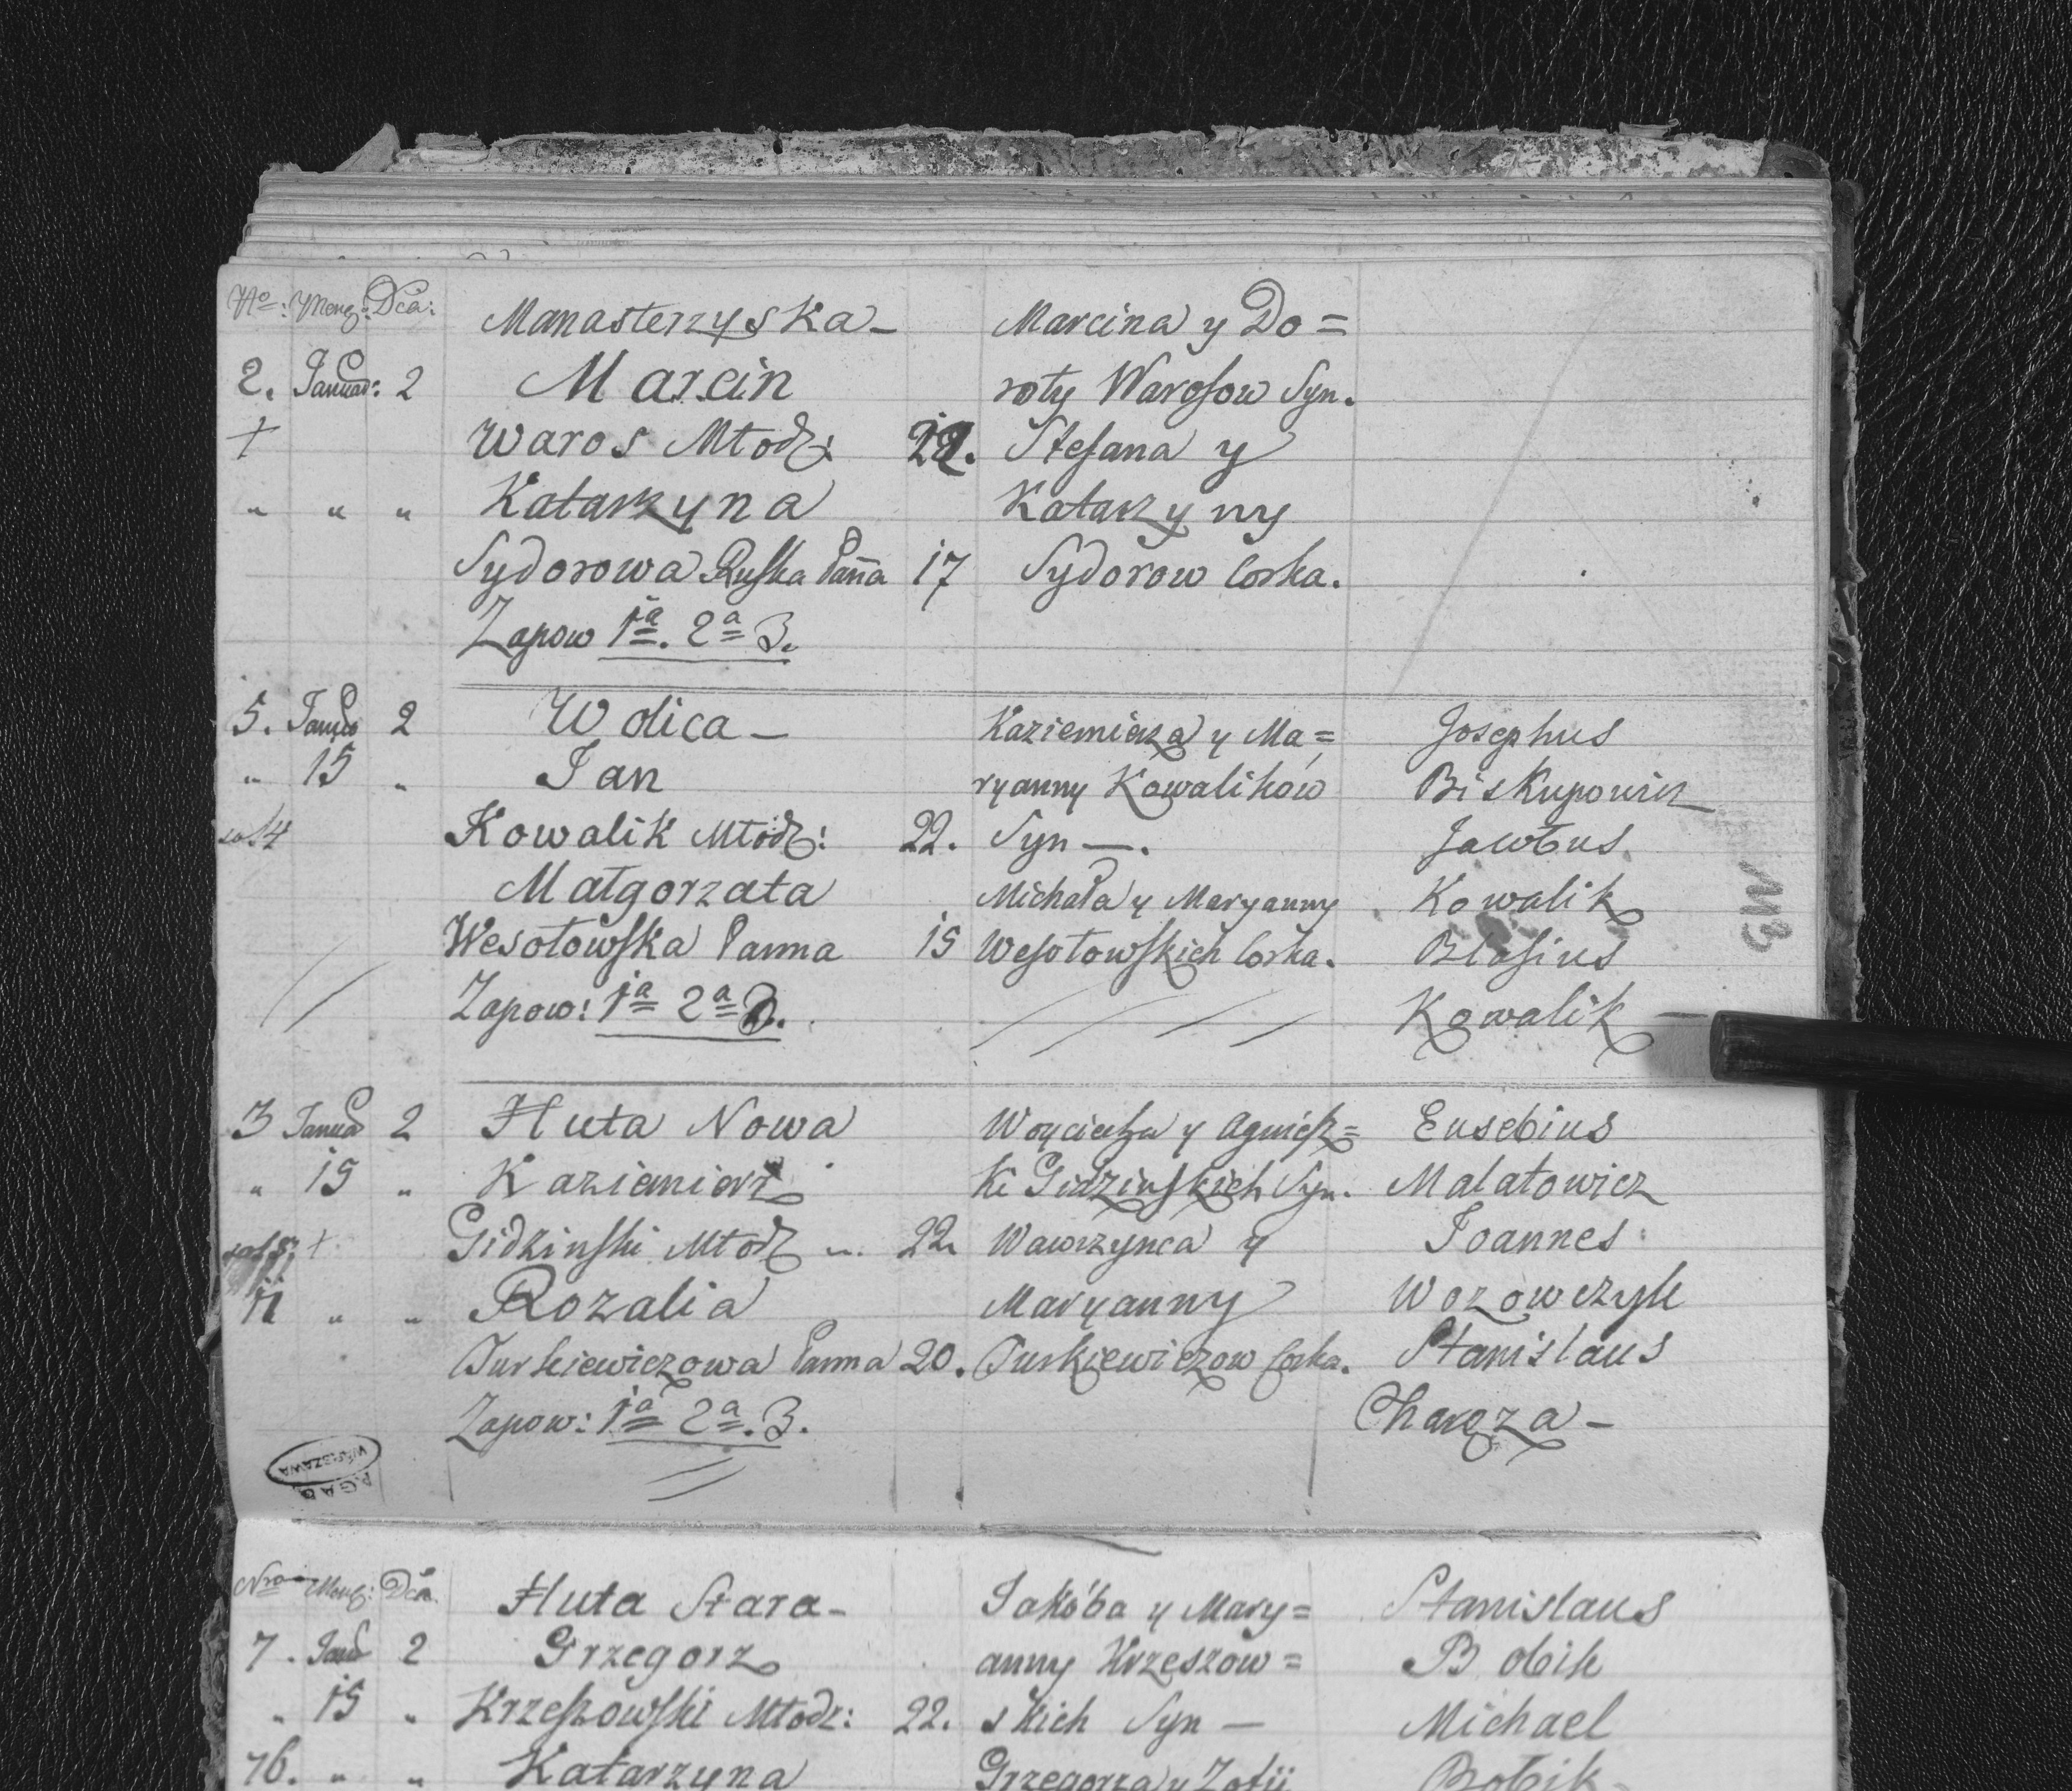 No: Meng: Dca: Manasterzyska – Marcina y Do=
2. Januar: 2 Marcin roty Warosow Syn.
+ Waros Młodz: Stefana y
" " " Katarzyna Katarzyny
Sydorowa Ruska Panna 17 Sydorow Corka.
Zapow 1a. 2a 3.
5. 2 Wolica – Kaziemierza y Ma= Josephus
" 15 " Jan ryanny Kowalików Biskupowicz
Kowalik Młodz: 22. Syn –.
Małgorzata Michała y Maryanny Kowalik
Wesołowska Panna Wesołowskich Corka. Blasius
Zapow: 1a 2a Kowalik
3 Janua 2 Huta Nowa Woyciecha y Agniesz= Eusebius
" " Kaziemierz ki Gidzinskich Syn. Malatowicz
+ Gidzinski Młodz 22 Wawrzynca y Joannes
11 " " Rozalia Maryanny Wozowczyk
Turkiewiczowa Panna 20. Turkiewiczow Corka. Stanislaus
Zapow: 1a 2a. 3. Charęza –
WARSZAWA
A.G.A.D.
Nro Meng: Dca. Huta Stara – Jakóba y Mary= Stanislaus
7. 2 Grzegorz anny Krzeszow= Bobik
" " Krzeszowski Młodz: 22. skich Syn – Michael
76. " " Katarzyna Grzegorza y Zofii Bobik